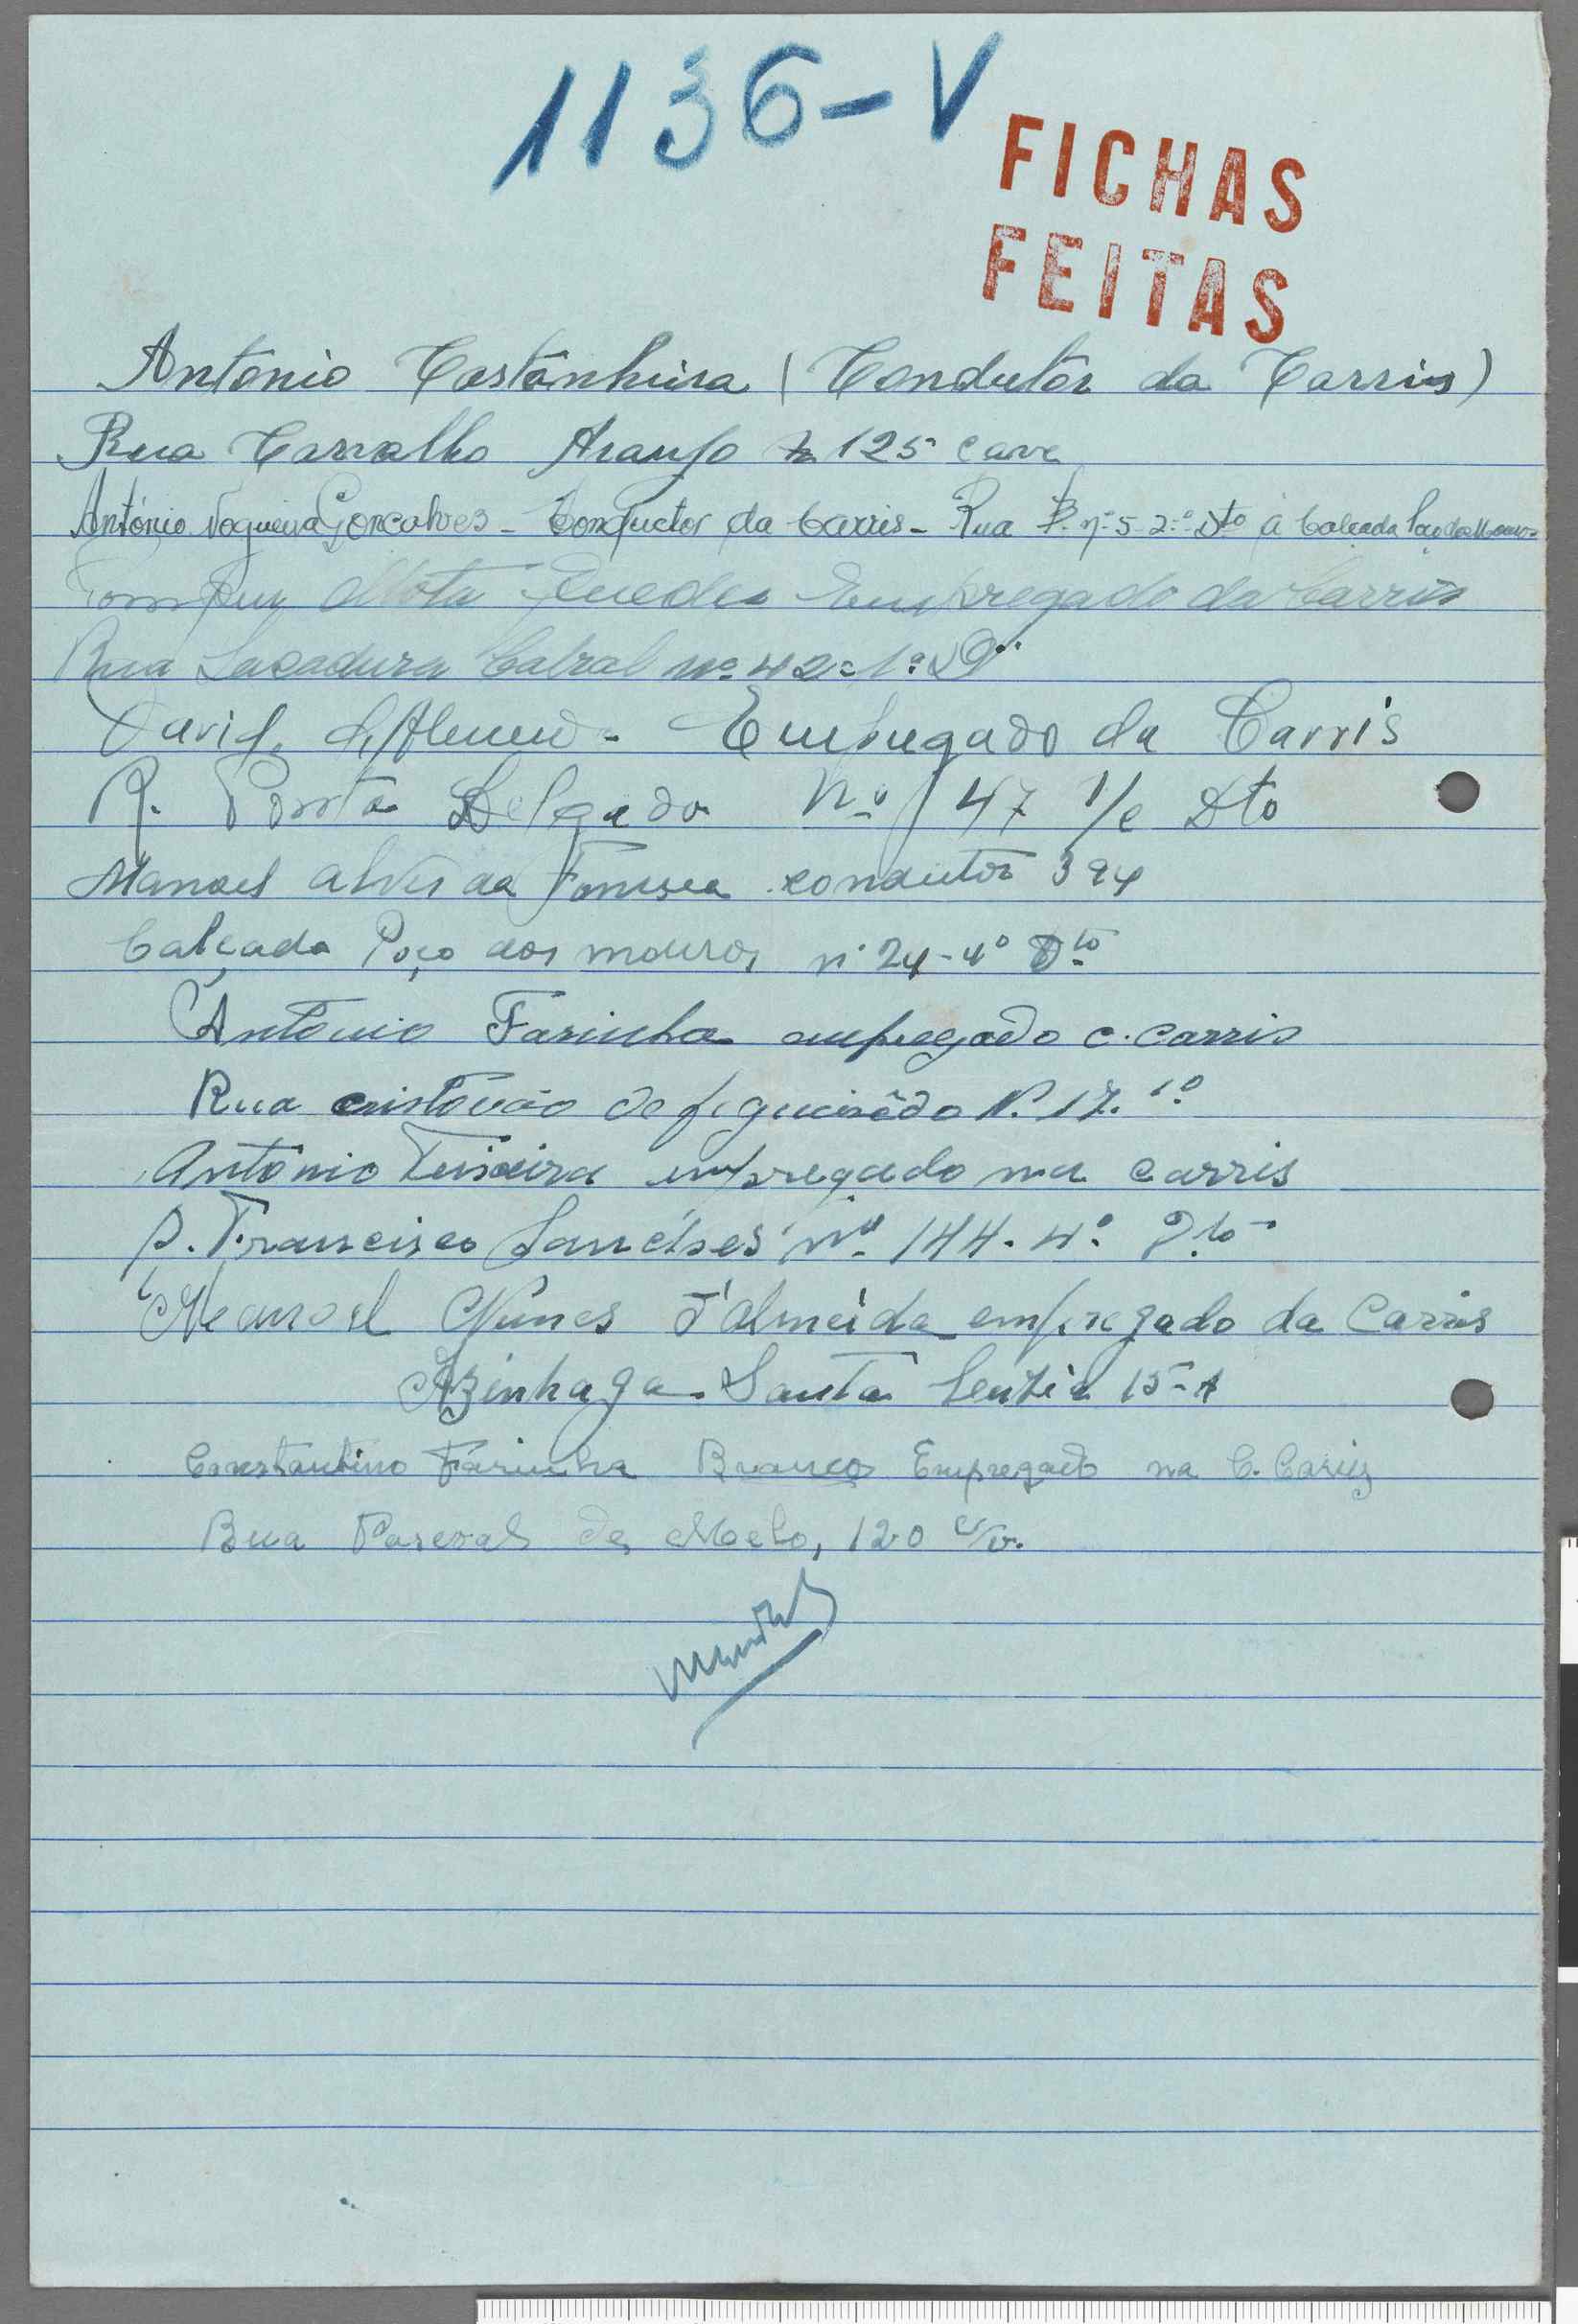 1136-V
FICHAS
FEITAS
António Castanheira (Condutôr da Carris)
Rua Carvalho Araujo 125 cave
António Nogueira Gonçalves - Conductor da Carris - Rua B. nº 5 2º Dto á Calçada Poço dos Mouros
Mota Guedes Empregado da Carris
Rua Sacadura Cabral nº 42 = 1º D
David Empregado da Carris
R. Ponta Delgada Nº 147 Dto
Manoel alves da Fonseca condutôr 394
Calçada Poço dos mouros nº 24-4º Dto
António Farinha empregado c. carris
Rua cristovão de figueirêdo N. 17. 1º
António Teixeira empregado na carris
R. Francisco Sanches nº 144. 4º. Dto
Manoel Nunes d'Almeida empregado da Carris
Azinhaga Santa Luzia 15-A
Constantino Farinha Branco Empregado na C. Carris
Rua Pascoal de Melo, 120 c/v.